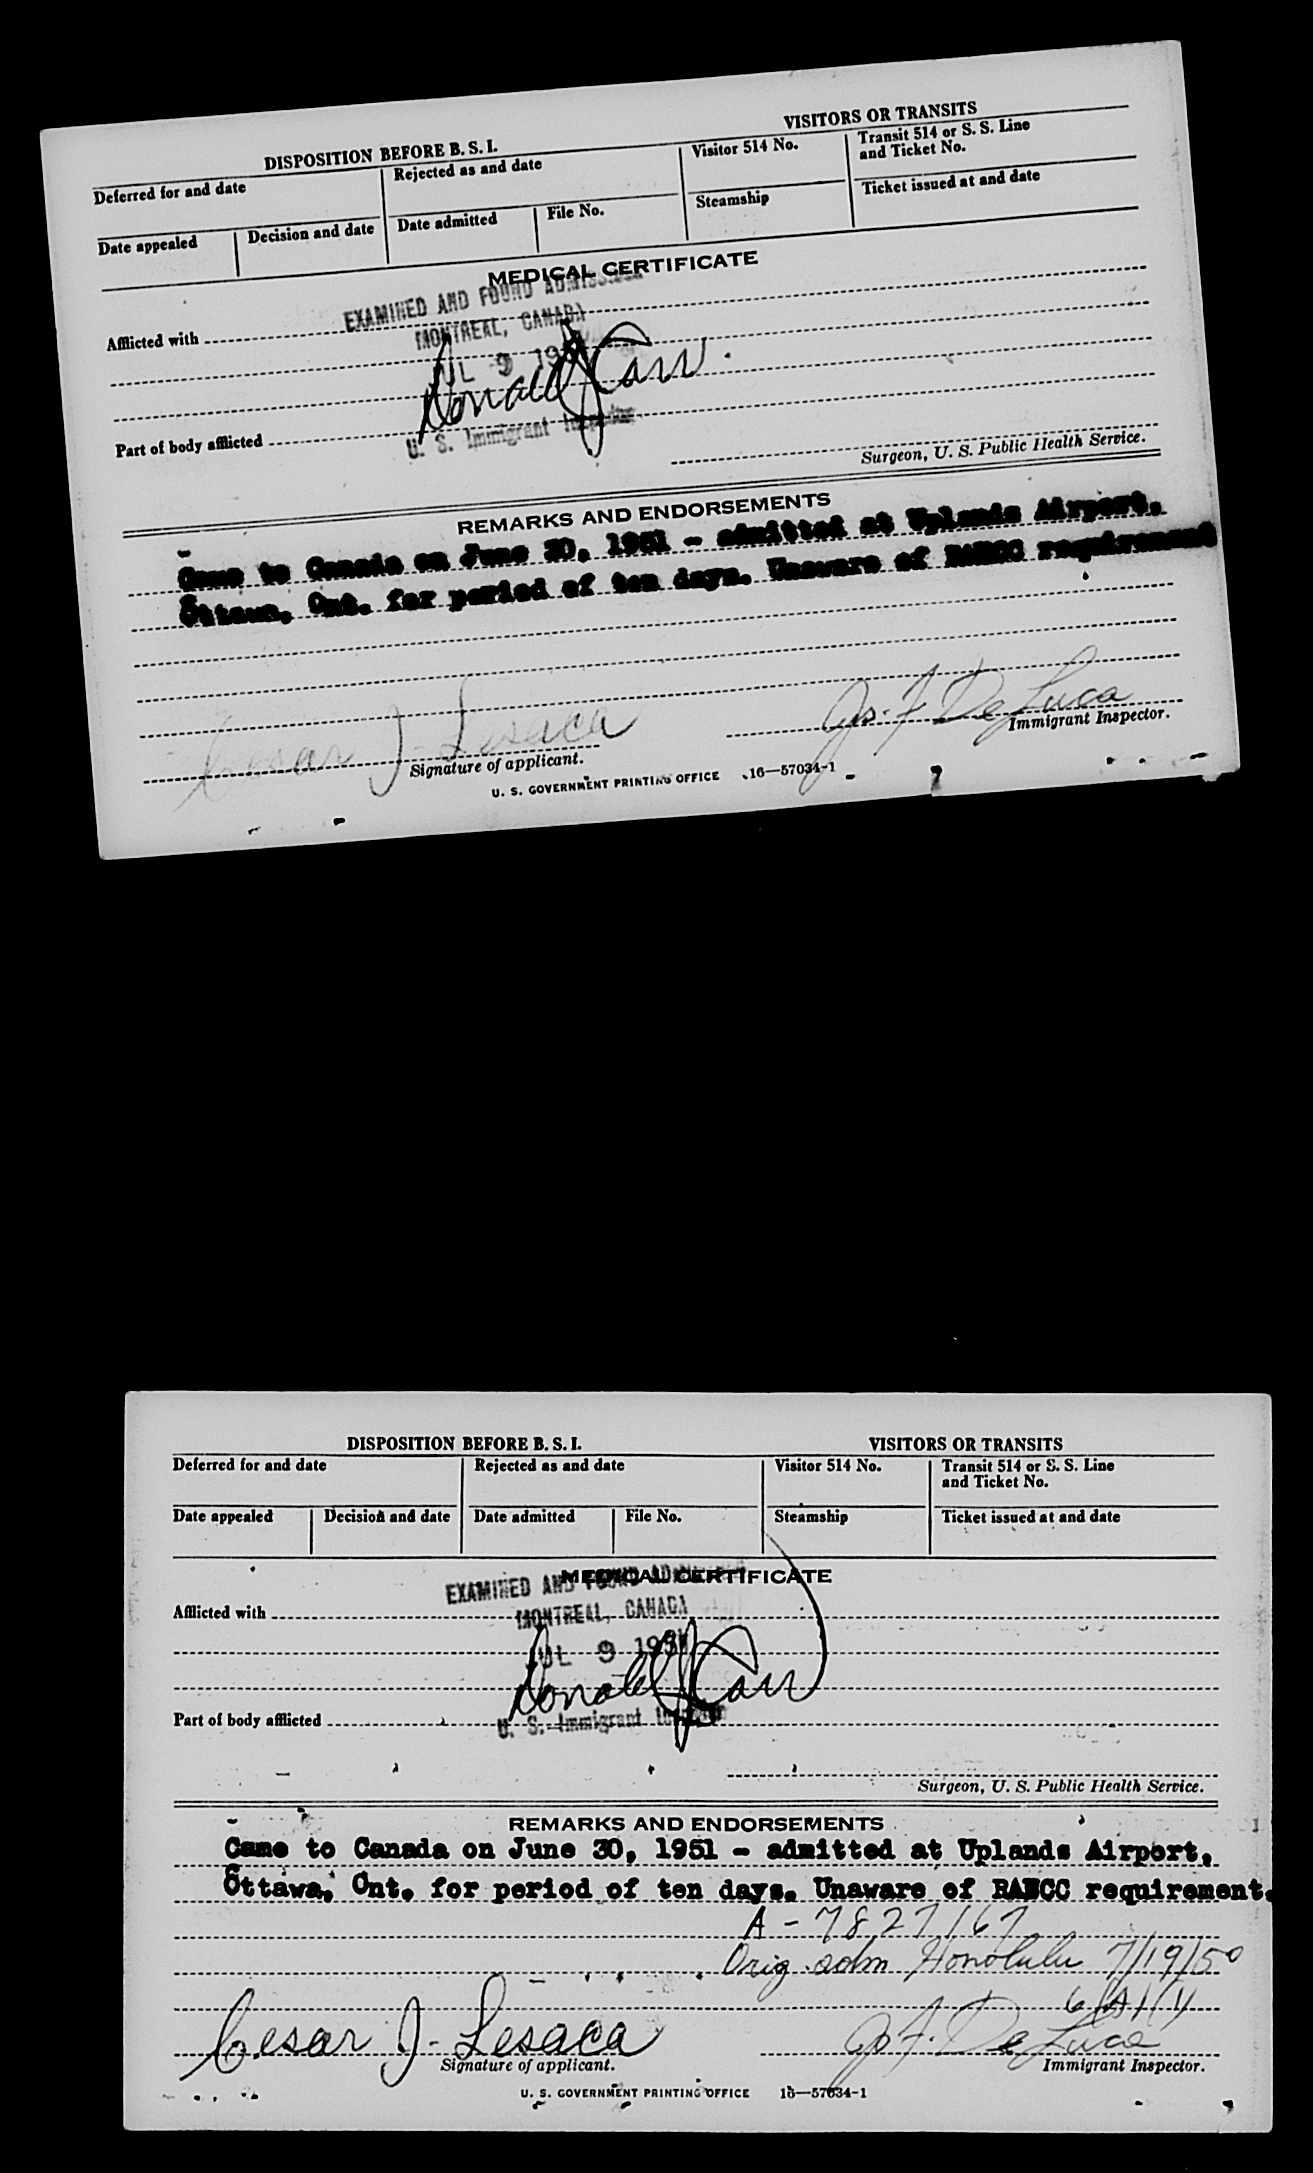 DISPOSITION BEFORE B. S. I.
VISITORS OR TRANSITS
Deferred for and date
Rejected as and date
Visitor 514 No.
Transit 514 or S. S. Line
and Ticket No.
Date appealed
Decision and date
Date admitted
File No.
Steamship
Ticket issued at and date
MEDICAL CERTIFICATE
EXAMINED AND FOUND
MONTREAL, CANADA
Afflicted with
JUL 9 195
Donald J Carr
U. S. Immigrant Inspector
Part of body afflicted
Surgeon, U. S. Public Health Service.
REMARKS AND ENDORSEMENTS
Came to Canada on June 30, 1951 - admitted at Uplands Airport,
Ottawa, Ont. for period of ten days. Unaware of requirement
Cesar J. Lesaca
Jos. F. De Luca
Signature of applicant.
Immigrant Inspector.
U. S. GOVERNMENT PRINTING OFFICE 16—57034-1
DISPOSITION BEFORE B. S. I.
VISITORS OR TRANSITS
Deferred for and date
Rejected as and date
Visitor 514 No.
Transit 514 or S. S. Line
and Ticket No.
Date appealed
Decision and date
Date admitted
File No.
Steamship
Ticket issued at and date
MEDICAL CERTIFICATE
EXAMINED AND FOUND
Afflicted with
MONTREAL, CANADA
JUL 9 195
Donald J Carr
Part of body afflicted
U. S. Immigrant
Surgeon, U. S. Public Health Service.
REMARKS AND ENDORSEMENTS
Came to Canada on June 30, 1951 - admitted at Uplands Airport,
Ottawa, Ont. for period of ten days. Unaware of requirement.
A-7827167
Orig adm Honolulu 7/19/50
Cesar J. Lesaca
Jos F. De Luca
Signature of applicant.
Immigrant Inspector.
U. S. GOVERNMENT PRINTING OFFICE 16—57034-1